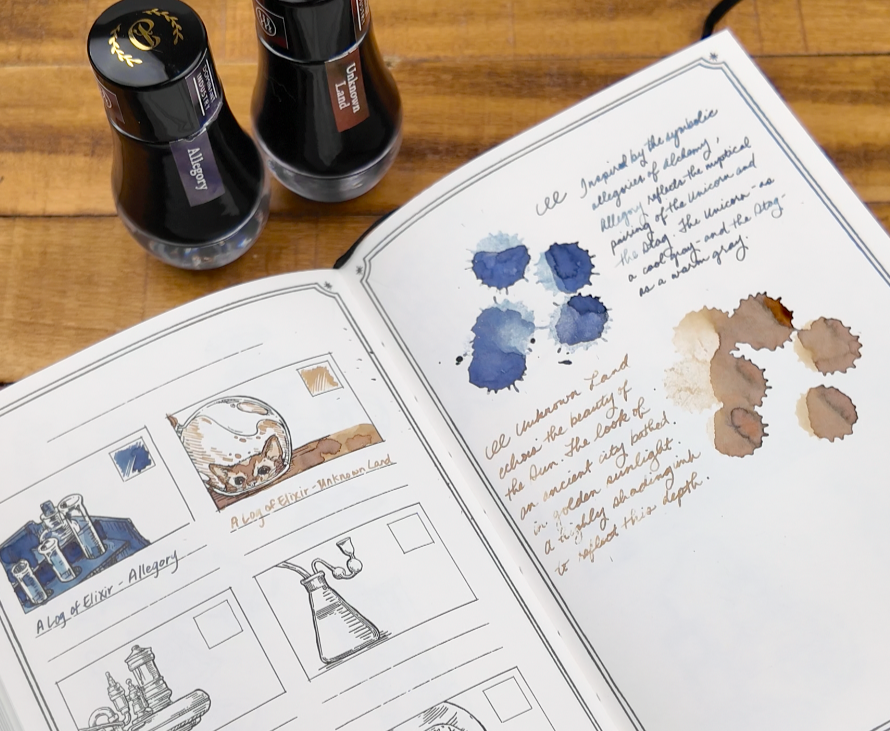 Allegory
Unknown
Land
Inspired by the symbolic
allegories of alchemy,
Allegory reflects the mystical
pairing of the Unicorn and
the Stag. The Unicorn - as
a cool gray - and the Stag -
as a warm gray.
Unknown Land
echoes the beauty of
the Sun. The look of
an ancient city bathed
in golden sunlight.
a highly shading ink
to reflect this depth.
A Log of Elixir - Unknown Land
A Log of Elixir - Allegory